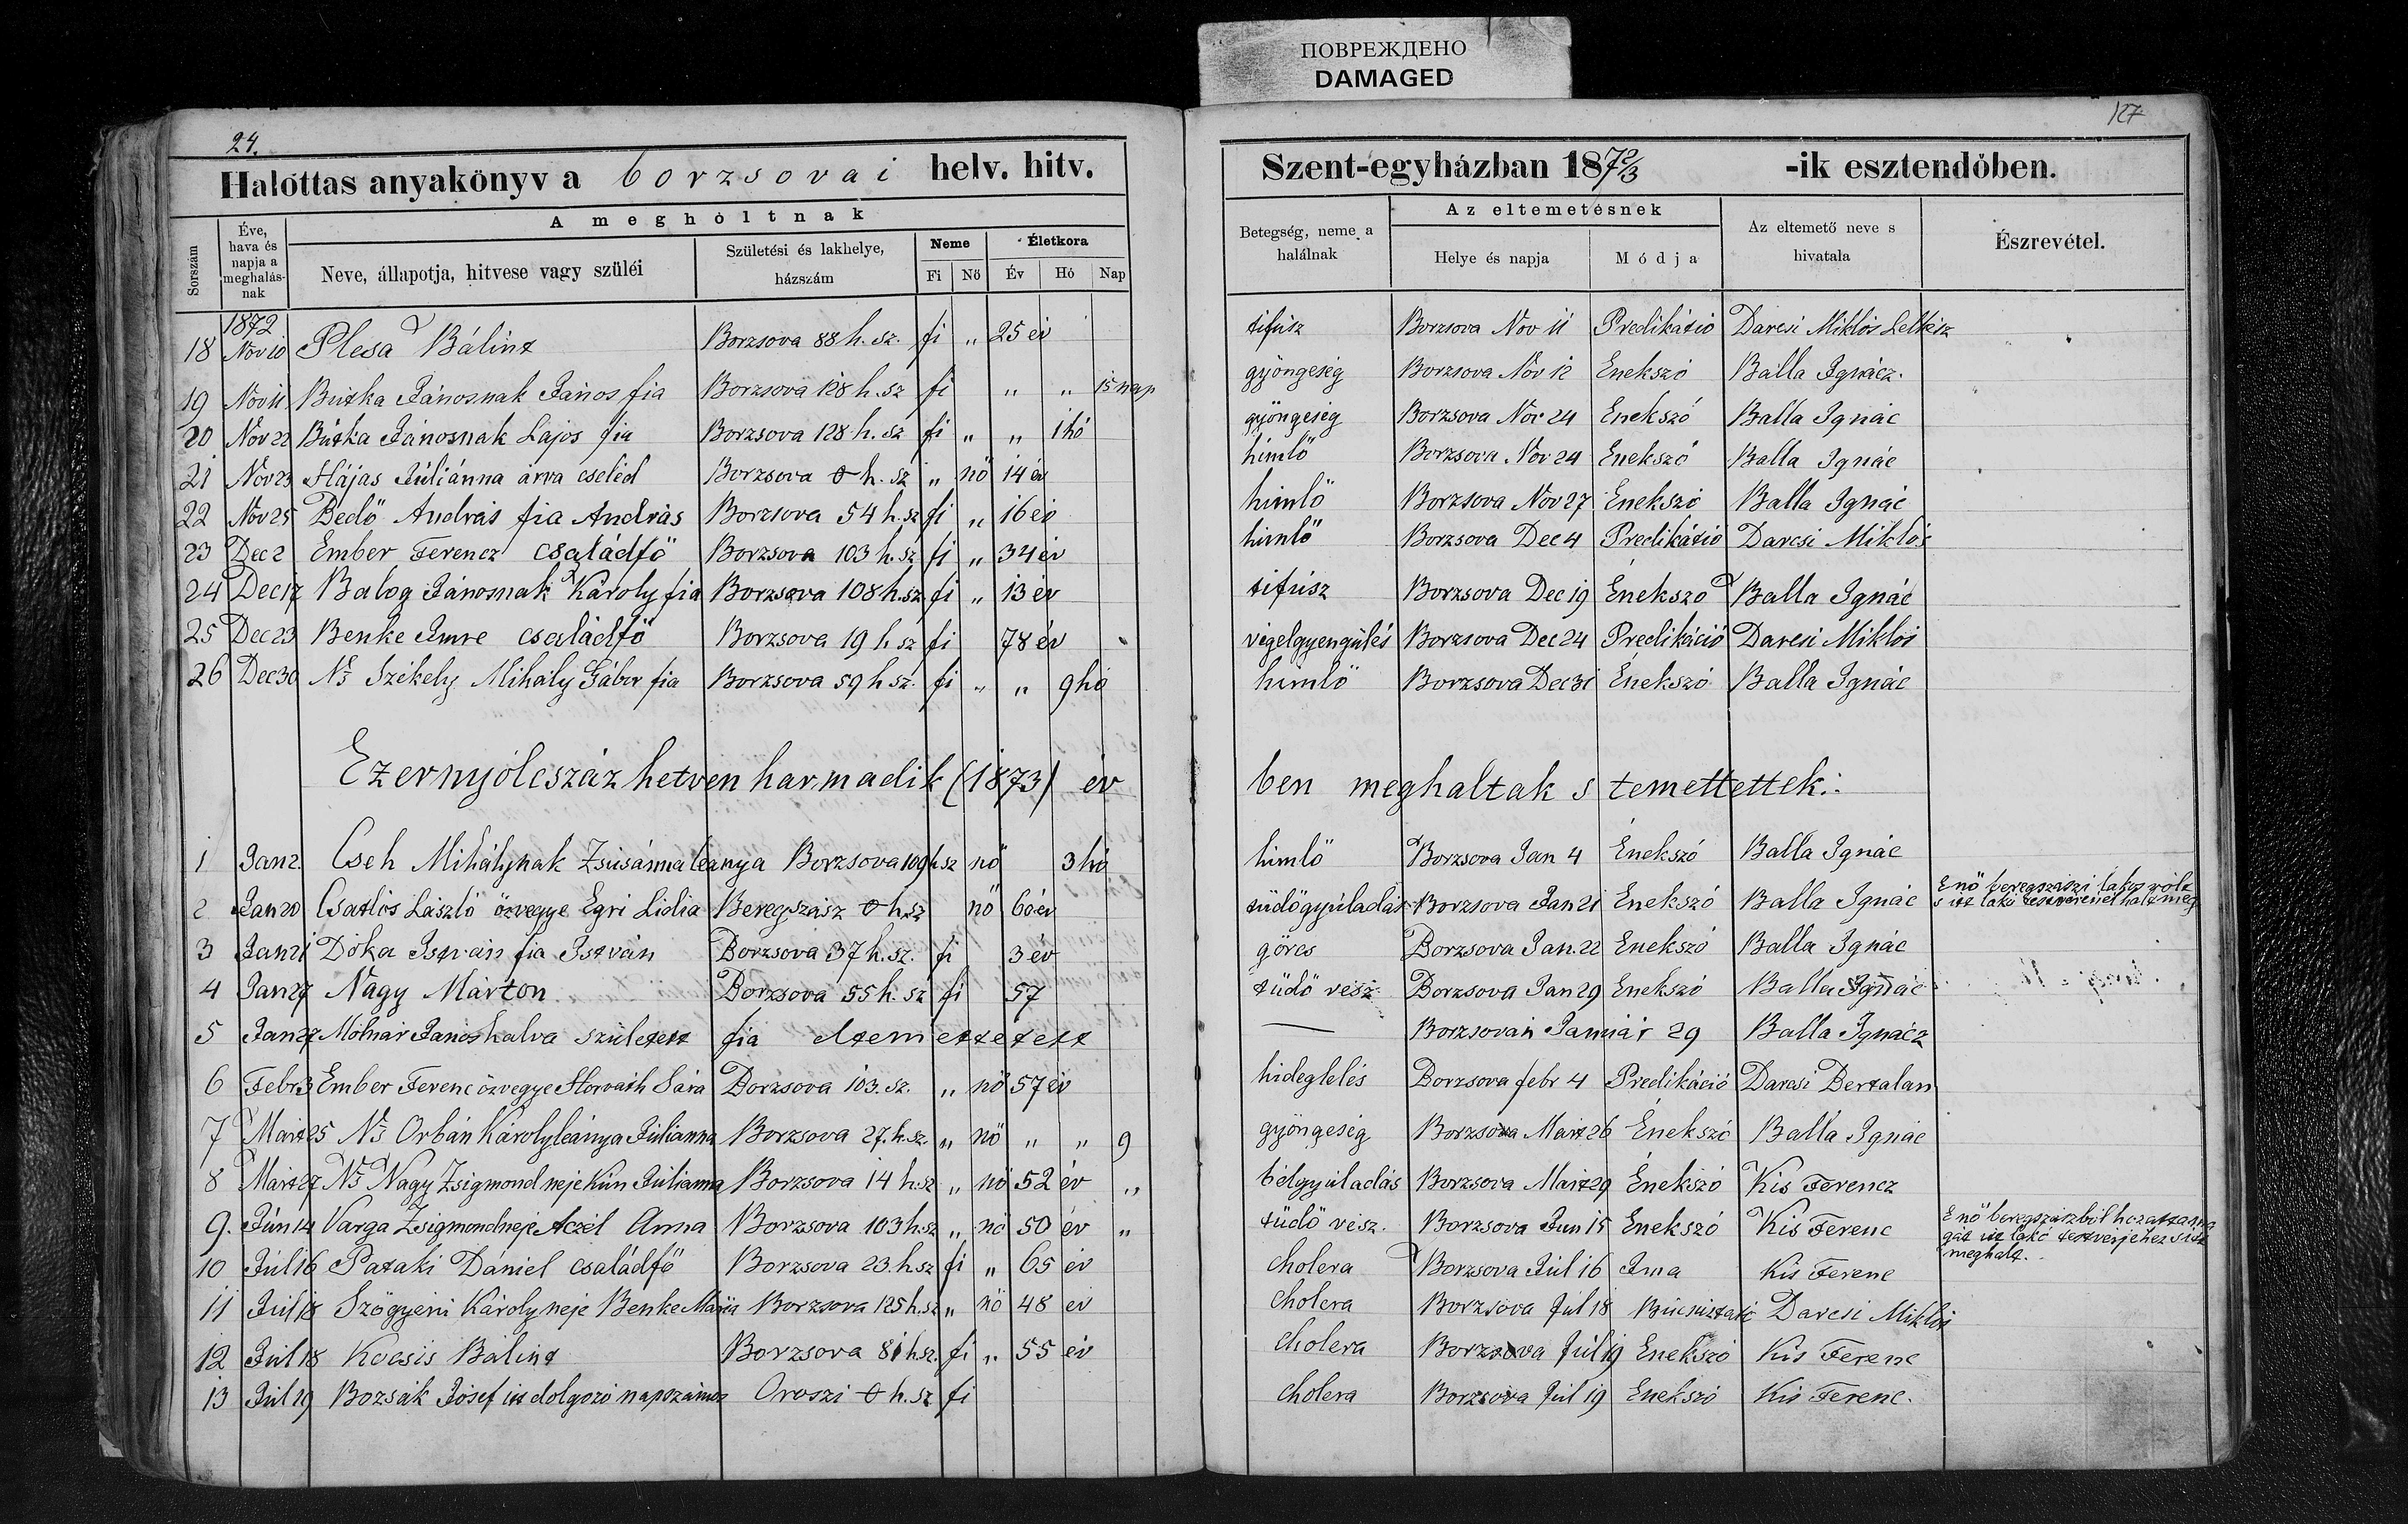 ПОВРЕЖДЕНО
DAMAGED
24.
Halottas anyakönyv a borzsovai helv. hitv.
A meghóltnak
Sorszám
Éve, hava és napja a meghalásnak
Neve, állapotja, hitvese vagy szüléi
Születési és lakhelye, házszám
Neme
Fi Nő
Életkora
Év Hó Nap
1872
18 Nov 10 Plesa Bálint Borzsova 88 h. sz. fi „ 25 év
19 Nov 11 Butka Jánosnak János fia Borzsova 128 h. sz fi „ „ 15 nap
20 Nov 22 Butka Jánosnak Lajos fia Borzsova 128 h. sz fi „ „ 1 hó
21 Nov 23 Hájas Júliánna árva cseléd Borzsova 0 h. sz „ nő 14 év
22 Nov 25 Bedő András fia András Borzsova 54 h. sz fi „ 16 év
23 Dec 2 Ember Ferencz családfő Borzsova 103 h. sz fi „ 34 év
24 Dec 17 Balog Jánosnak Károly fia Borzsova 108 h. sz fi „ 13 év
25 Dec 23 Benke Imre családfő Borzsova 19 h sz fi 78 év
26 Dec 30 Ns Székely Mihály Gábor fia Borzsova 59 h sz. fi „ „ 9 hó
Ezernyólcszáz hetven harmadik (1873) év
1 Jan 2. Cseh Mihálynak Zsúsánna leánya Borzsova 109 h sz nő 3 hó
2 Jan 20 Csatlós László özvegye Egri Lidia Beregszász 0 h sz nő 60 év
3 Jan 21 Dóka István fia István Borzsova 37 h. sz. fi 3 év
4 Jan 27 Nagy Márton Borzsova 55 h. sz fi 57
5 Jan 27 Mólnár Jánós halva született fia eltemettetett
6 Febr 3 Ember Ferenc özvegye Horváth Sára Borzsova 103. sz. „ nő 57 év
7 Márt 25 Ns Orbán Károly leánya Júliánna Borzsova 27. h. sz. „ nő „ „ 9
8 Márt 27 Ns Nagy Zsigmond neje Kún Júliánna Borzsova 14 h. sz „ nő 52 év „
9. Jún 14 Varga Zsigmond neje Aczél Anna Borzsova 103 h. sz „ nő 50 év „
10 Júl 16 Pataki Dániel családfő Borzsova 23. h. sz fi „ 65 év
11 Júl 18 Szögyéni Károly neje Benke Mária Borzsova 125 h. sz „ nő 48 év
12 Júl 18 Kocsis Bálint Borzsova 81 h sz. fi „ 55 év
13 Júl 19 Bozsák Jósef itt dolgozó napszámos Oroszi 0 h. sz fi
127
Szent-egyházban 1872/3 -ik esztendőben.
Betegség, neme a halálnak
Az eltemetésnek
Helye és napja
Módja
Az eltemető neve s hivatala
Észrevétel.
tifúsz Borzsova Nov 11 Predikátió Darcsi Miklós Lelkész
gyöngeség Borzsova Nov 12 Énekszó Balla Ignácz.
gyöngeség Borzsova Nov 24 Énekszó Balla Ignác
himlő Borzsova Nov 24 Énekszó Balla Ignác
himlő Borzsova Nov 27 Énekszó Balla Ignác
himlő Borzsova Dec 4 Predikátió Darcsi Miklós
tifúsz Borzsova Dec 19 Énekszó Balla Ignác
végelgyengülés Borzsova Dec 24 Predikáció Darcsi Miklós
himlő Borzsova Dec 31 Énekszó Balla Ignác
ben meghaltak s temettettek:
himlő Borzsova Jan 4 Énekszó Balla Ignác
tüdőgyúladás Borzsova Jan 21 Énekszó Balla Ignác E nő beregszászi lakos vólt
s itt lakó testvérénél halt meg
görcs Borzsova Jan. 22 Énekszó Balla Ignác
tüdő vész Borzsova Jan 29 Énekszó Balla Ignác
— Borzsován Január 29 Balla Ignácz
hideglelés Borzsova febr 4 Predikáció Darcsi Bertalan
gyöngeség Borzsova Márt 26 Énekszó Balla Ignác
bélgyúladás Borzsova Márt 29 Énekszó Kis Ferencz
tüdő vész. Borzsova Jun 15 Énekszó Kis Ferenc E nő beregszászból hozattatta ma
gát itt lakó testverjéhez s itt
meghalt.
cholera Borzsova Júl 16 Ima Kis Ferenc
cholera Borzsova Júl 18 Búcsúztató Darcsi Miklós
cholera Borzsova Júl 19 Énekszó Kis Ferenc
cholera Borzsova Júl 19 Énekszó Kis Ferenc.